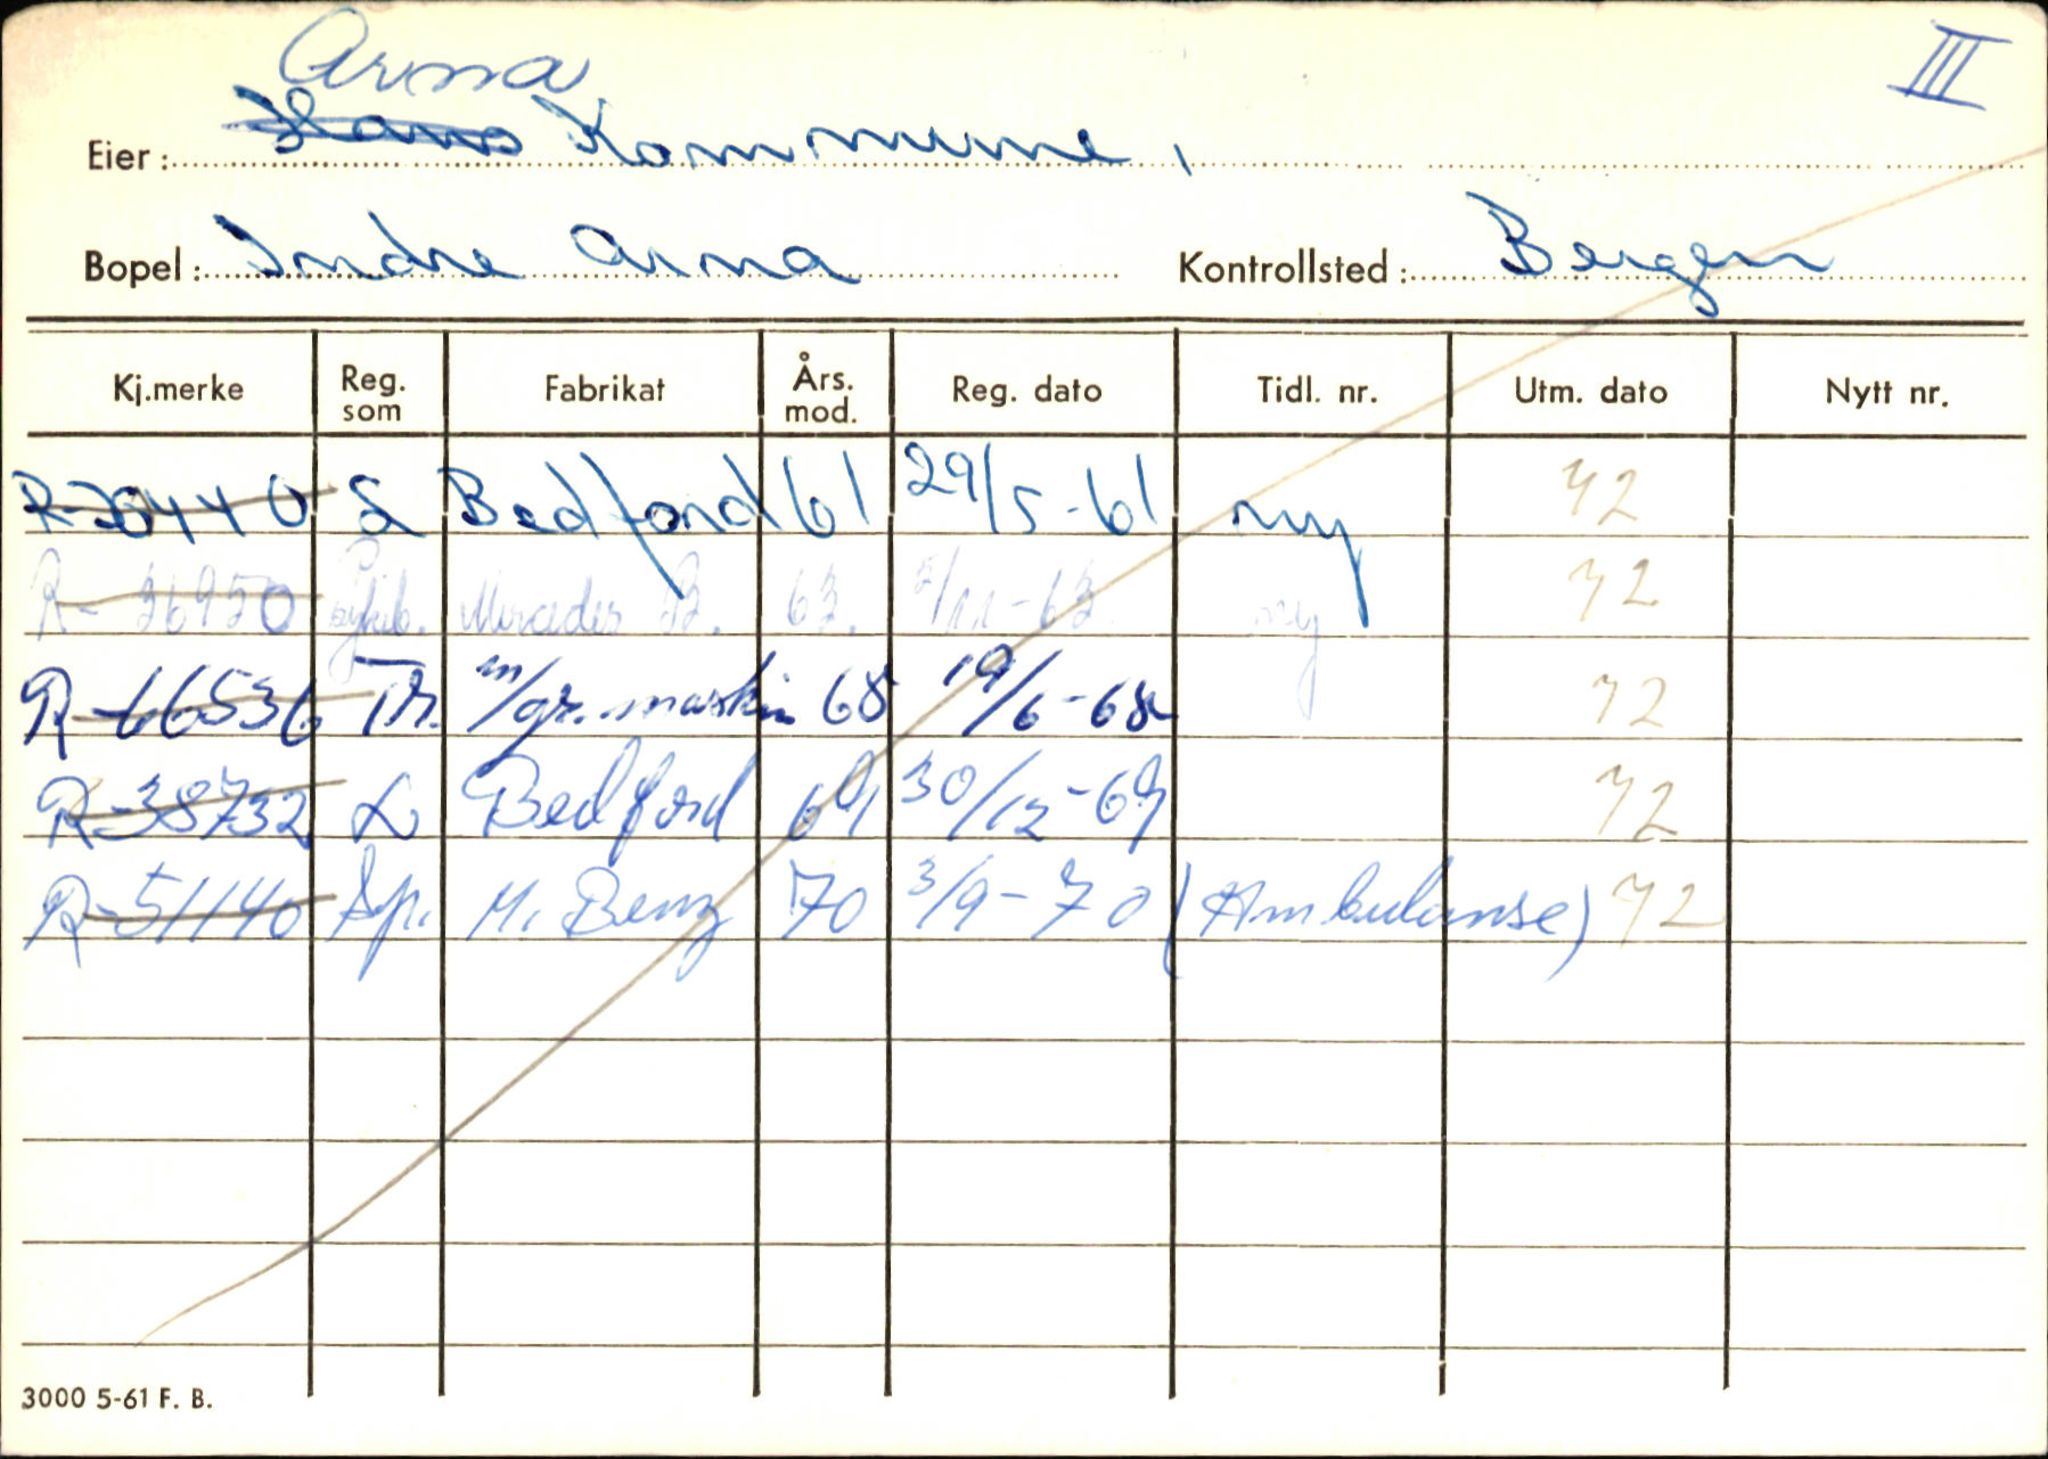 Arna
III
Eier: Haus Kommune,
Bopel: Indre Arna Kontrollsted: Bergen
Kj.merke Reg. som Fabrikat Års. mod. Reg. dato Tidl. nr. Utm. dato Nytt nr.
R-20440 L Bedford 61 29/5-61 ny 72
R-36950 Sykeb. Mercedes B. 63. 2/11-63. ny 72
R-66536 Tr. m/gr.maskin 68 19/6-68 72
R-38732 L Bedford 69 30/12-69 72
R-51140 Sp. M. Benz 70 3/9-70 (Ambulanse) 72
3000 5-61 F. B.